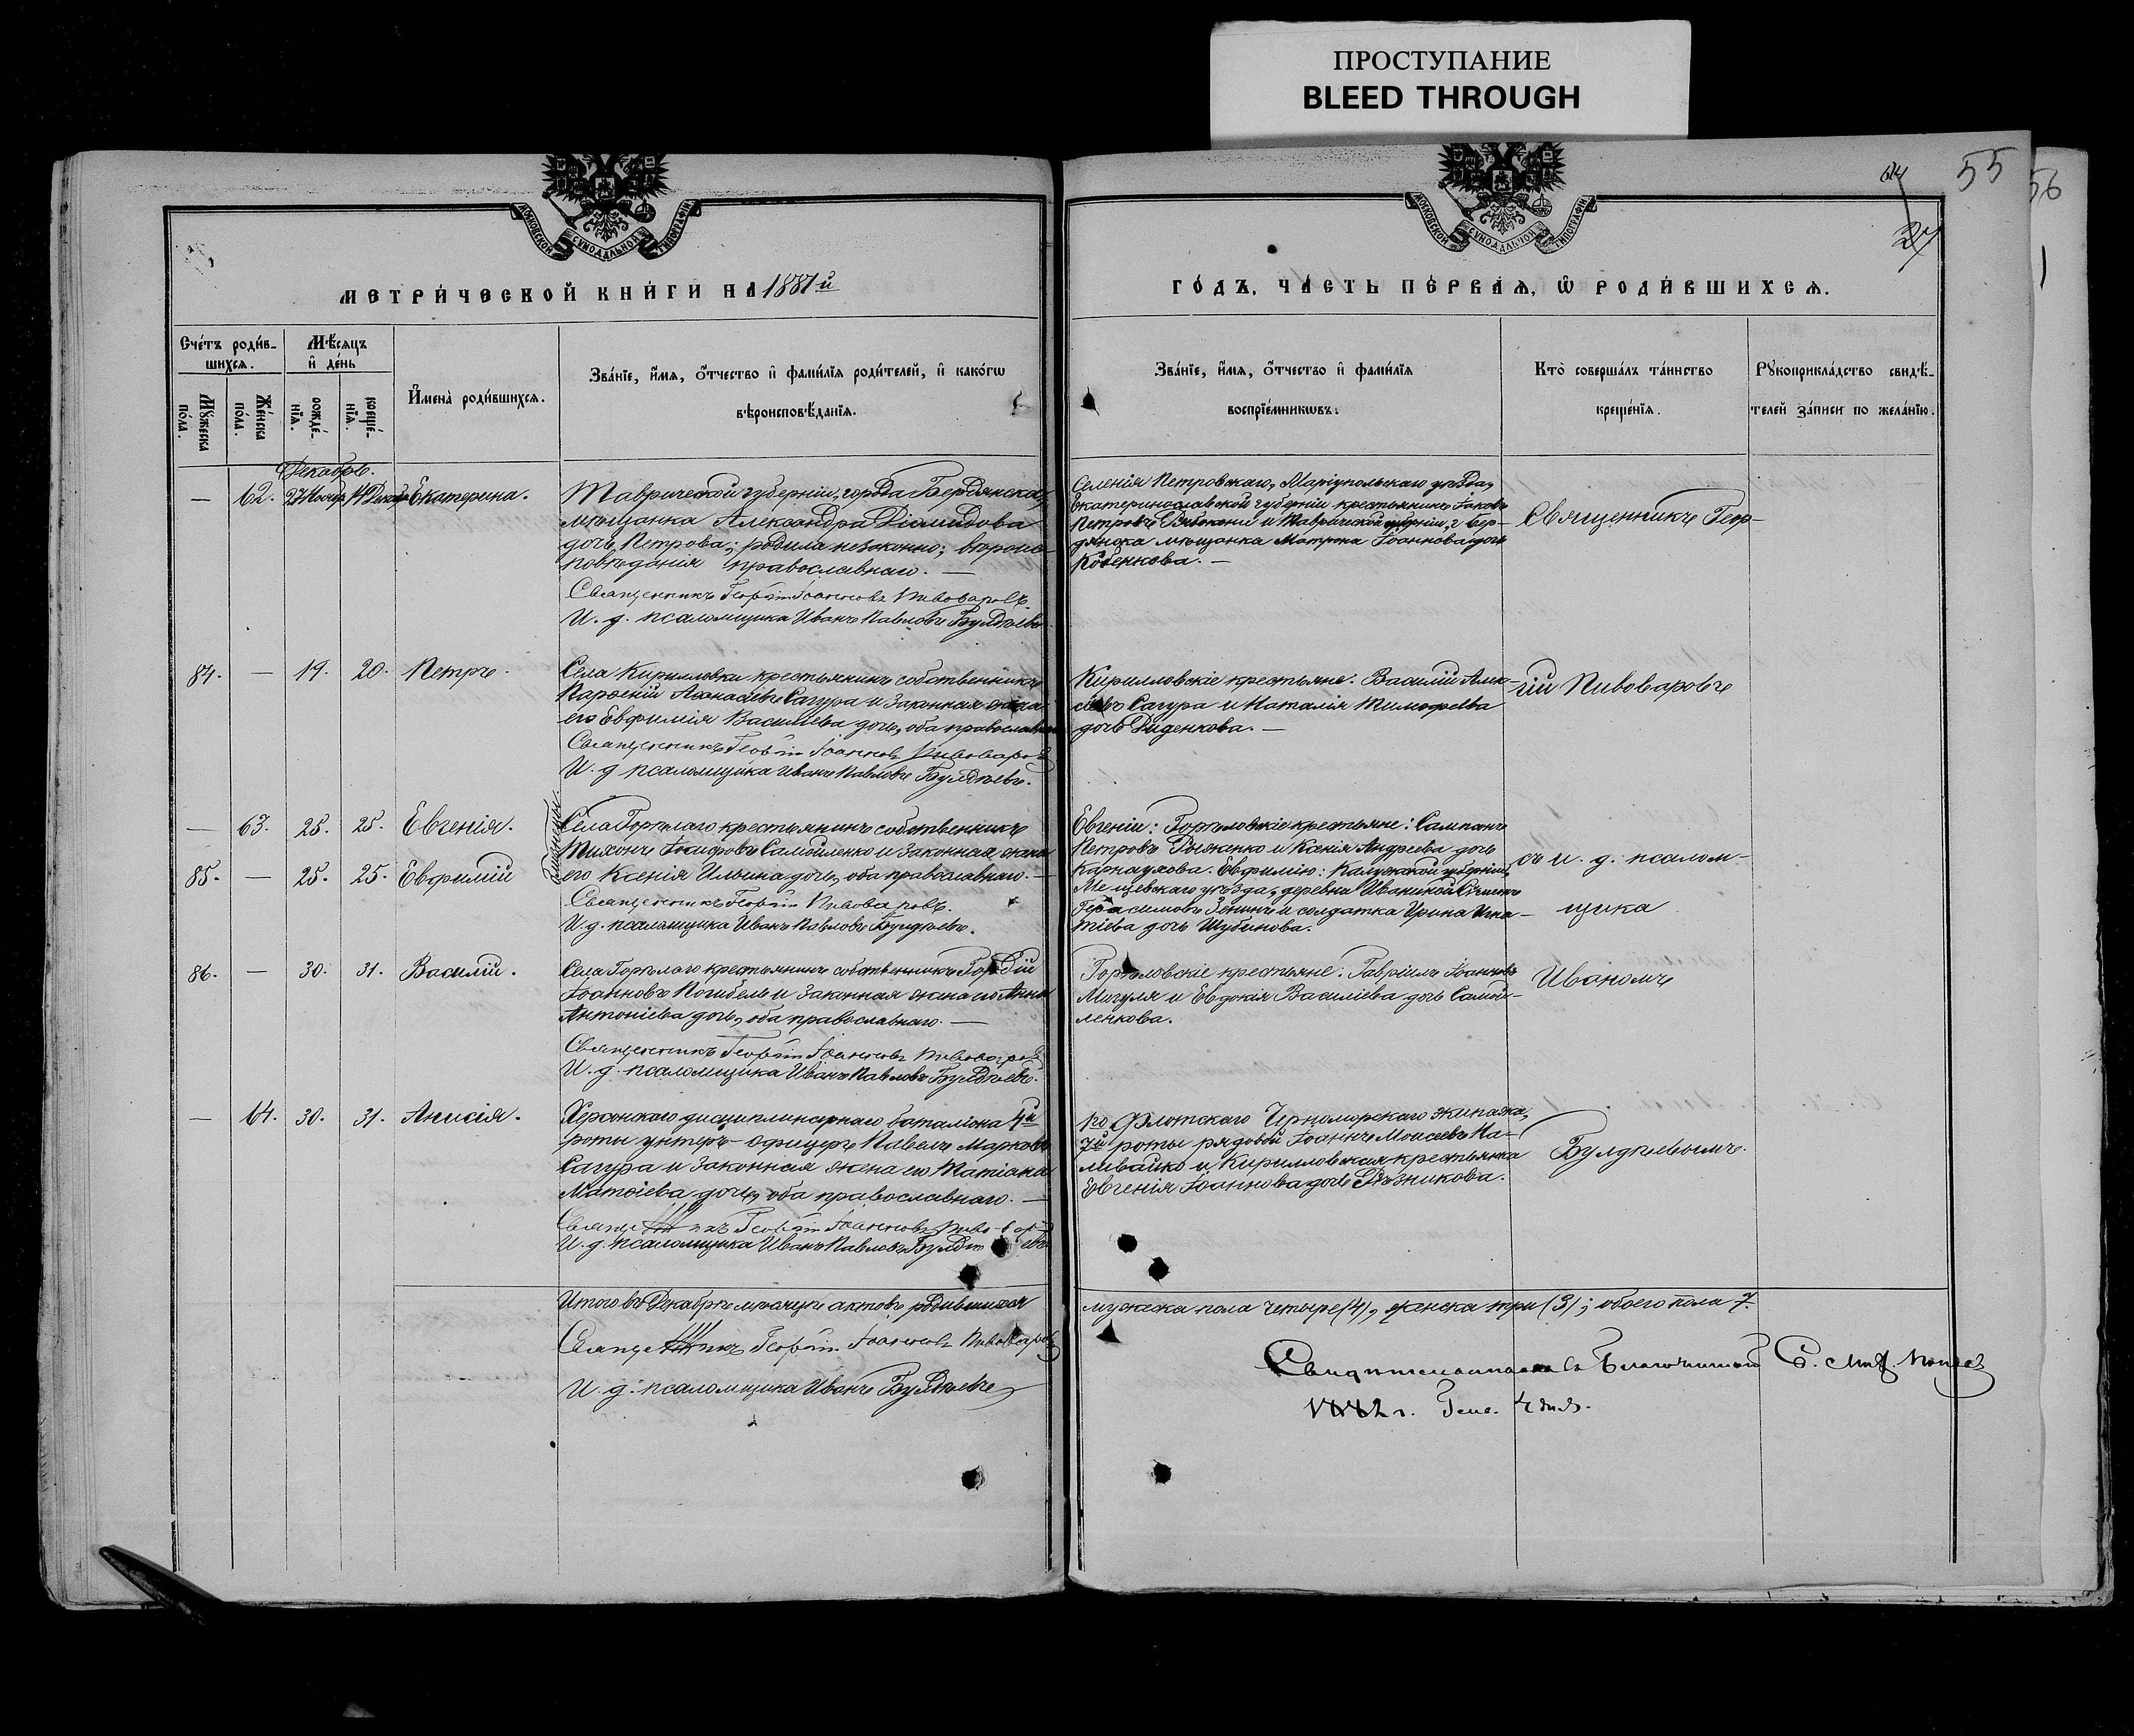 ПРОСТУПАНИЕ
BLEED THROUGH
55
56
МОСКОВСКОЙ СѴНОДАЛЬНОЙ ТИПОГРАФІИ
МОСКОВСКОЙ СѴНОДАЛЬНОЙ ТИПОГРАФІИ
МЕТРИ́ЧЕСКОЙ КНИ́ГИ НА 1881й
ГО́ДЪ, ЧА́СТЬ ПЕ́РВАѦ, Ѡ РОДИ́ВШИХСѦ.
Сче́тъ роди́в-
шихсѧ.
Мѣ́сяцъ
и҆ де́нь
Мꙋ́жеска по́ла.
Же́нска по́ла.
рожде́-нїѧ.
креще́-нїѧ.
И҆мена̀ роди́вшихсѧ.
Зва́нїе, и҆́мѧ, о҆́тчество и҆ фами́лїѧ роди́телей, и҆ како́гѡ
вѣроисповѣ́данїѧ.
Зва́нїе, и҆́мѧ, о҆́тчество и҆ фами́лїѧ
воспрїе́мникѡвъ.
Кто̀ соверша́лъ та́инство
креще́нїѧ.
Рꙋкоприкла́дство свидѣ́-
телей за́писи по жела́нїю.
Декабрь.
— 62. 27 Ноябр. Екатерина.
Таврической губерніи, города Бердянска,
мѣщанка Александра Діомидова
дочь Петрова; родила незаконно; вѣроис-
повѣданія православнаго. —
Священникъ Георгій Іоанновъ Пивоваровъ.
И. д. псаломщика Иванъ Павловъ Булдѣевъ.
Селенія Петровскаго, Маріупольскаго уѣзда,
Екатеринославской губерніи крестьянинъ Іаковъ
Петровъ и Таврической губерніи, г. Бер-
дянска мѣщанка Матрона Іоаннова дочь
Коденкова. —
Священникъ Геор-
84. — 19. 20. Петръ.
Села Кирилловки крестьянинъ собственникъ
Парѳеній Аѳанасіевъ Сагура и законная жена
его Евфимія Васильева дочь, оба православнаго
Священникъ Георгій Іоанновъ Пивоваровъ
И. д. псаломщика Иванъ Павловъ Булдѣевъ.
Кирилловскіе крестьяне: Василій Алек-
сѣевъ Сагура и Наталія Тимофеева
дочь Диденкова. —
гій Пивоваровъ
— 63. 25. 25. Евгенія.
85. — 25. 25. Евфимій
близнецы.
Села Горѣлаго крестьянинъ собственникъ
Тихонъ Самойленко и законная жена
его Ксенія Ильина дочь, оба православнаго. —
Священникъ Георгій Пивоваровъ.
И. д. псаломщика Иванъ Павловъ Булдѣевъ.
Евгеніи: Горѣловскіе крестьяне: Сампсонъ
Петровъ Рыженко и Ксенія Андреева дочь
Карнаухова. Евфимію: Калужской губерніи,
Мещевскаго уѣзда, деревни
Герасимовъ Зенинъ и солдатка Ирина Игна-
тіева дочь Шубинова.
съ и. д. псалом-
щика
86. — 30. 31. Василій.
Села Горѣлаго крестьянинъ собственникъ Гордій
Іоанновъ Погибель и законная жена его Анна
Антоніева дочь, оба православнаго. —
Священникъ Георгій Іоанновъ Пивоваровъ
И. д. псаломщика Иванъ Павловъ Булдѣевъ.
Горѣловскіе крестьяне: Гавріилъ Іоанновъ
Мигуля и Евдокія Василіева дочь Самой-
ленкова.
Иваномъ
— 64. 30. 31. Анисія.
Херсонскаго дисциплинарнаго баталіона 4й
роты унтеръ-офицеръ Павелъ Марковъ
Сагура и законная жена его Татіана
Матѳіева дочь, оба православнаго. —
Священникъ Георгій Іоанновъ Пивоваровъ
И. д. псаломщика Иванъ Павловъ Булдѣевъ
го Флотскаго Черноморскаго экипажа,
7й роты рядовой Іоаннъ Моисеевъ На-
ливайко и Кирилловская крестьянка
Евгенія Іоаннова дочь Рѣзникова.
Булдѣевымъ.
Итого въ Декабрѣ мѣсяцѣ актовъ родившихся
мужска пола четыре (4), женска три (3); обоего пола 7.
Священникъ Георгій Іоанновъ Пивоваровъ
И. д. псаломщика Иванъ Булдѣевъ
Благочинный
1882 г. Генв. 4 дня.